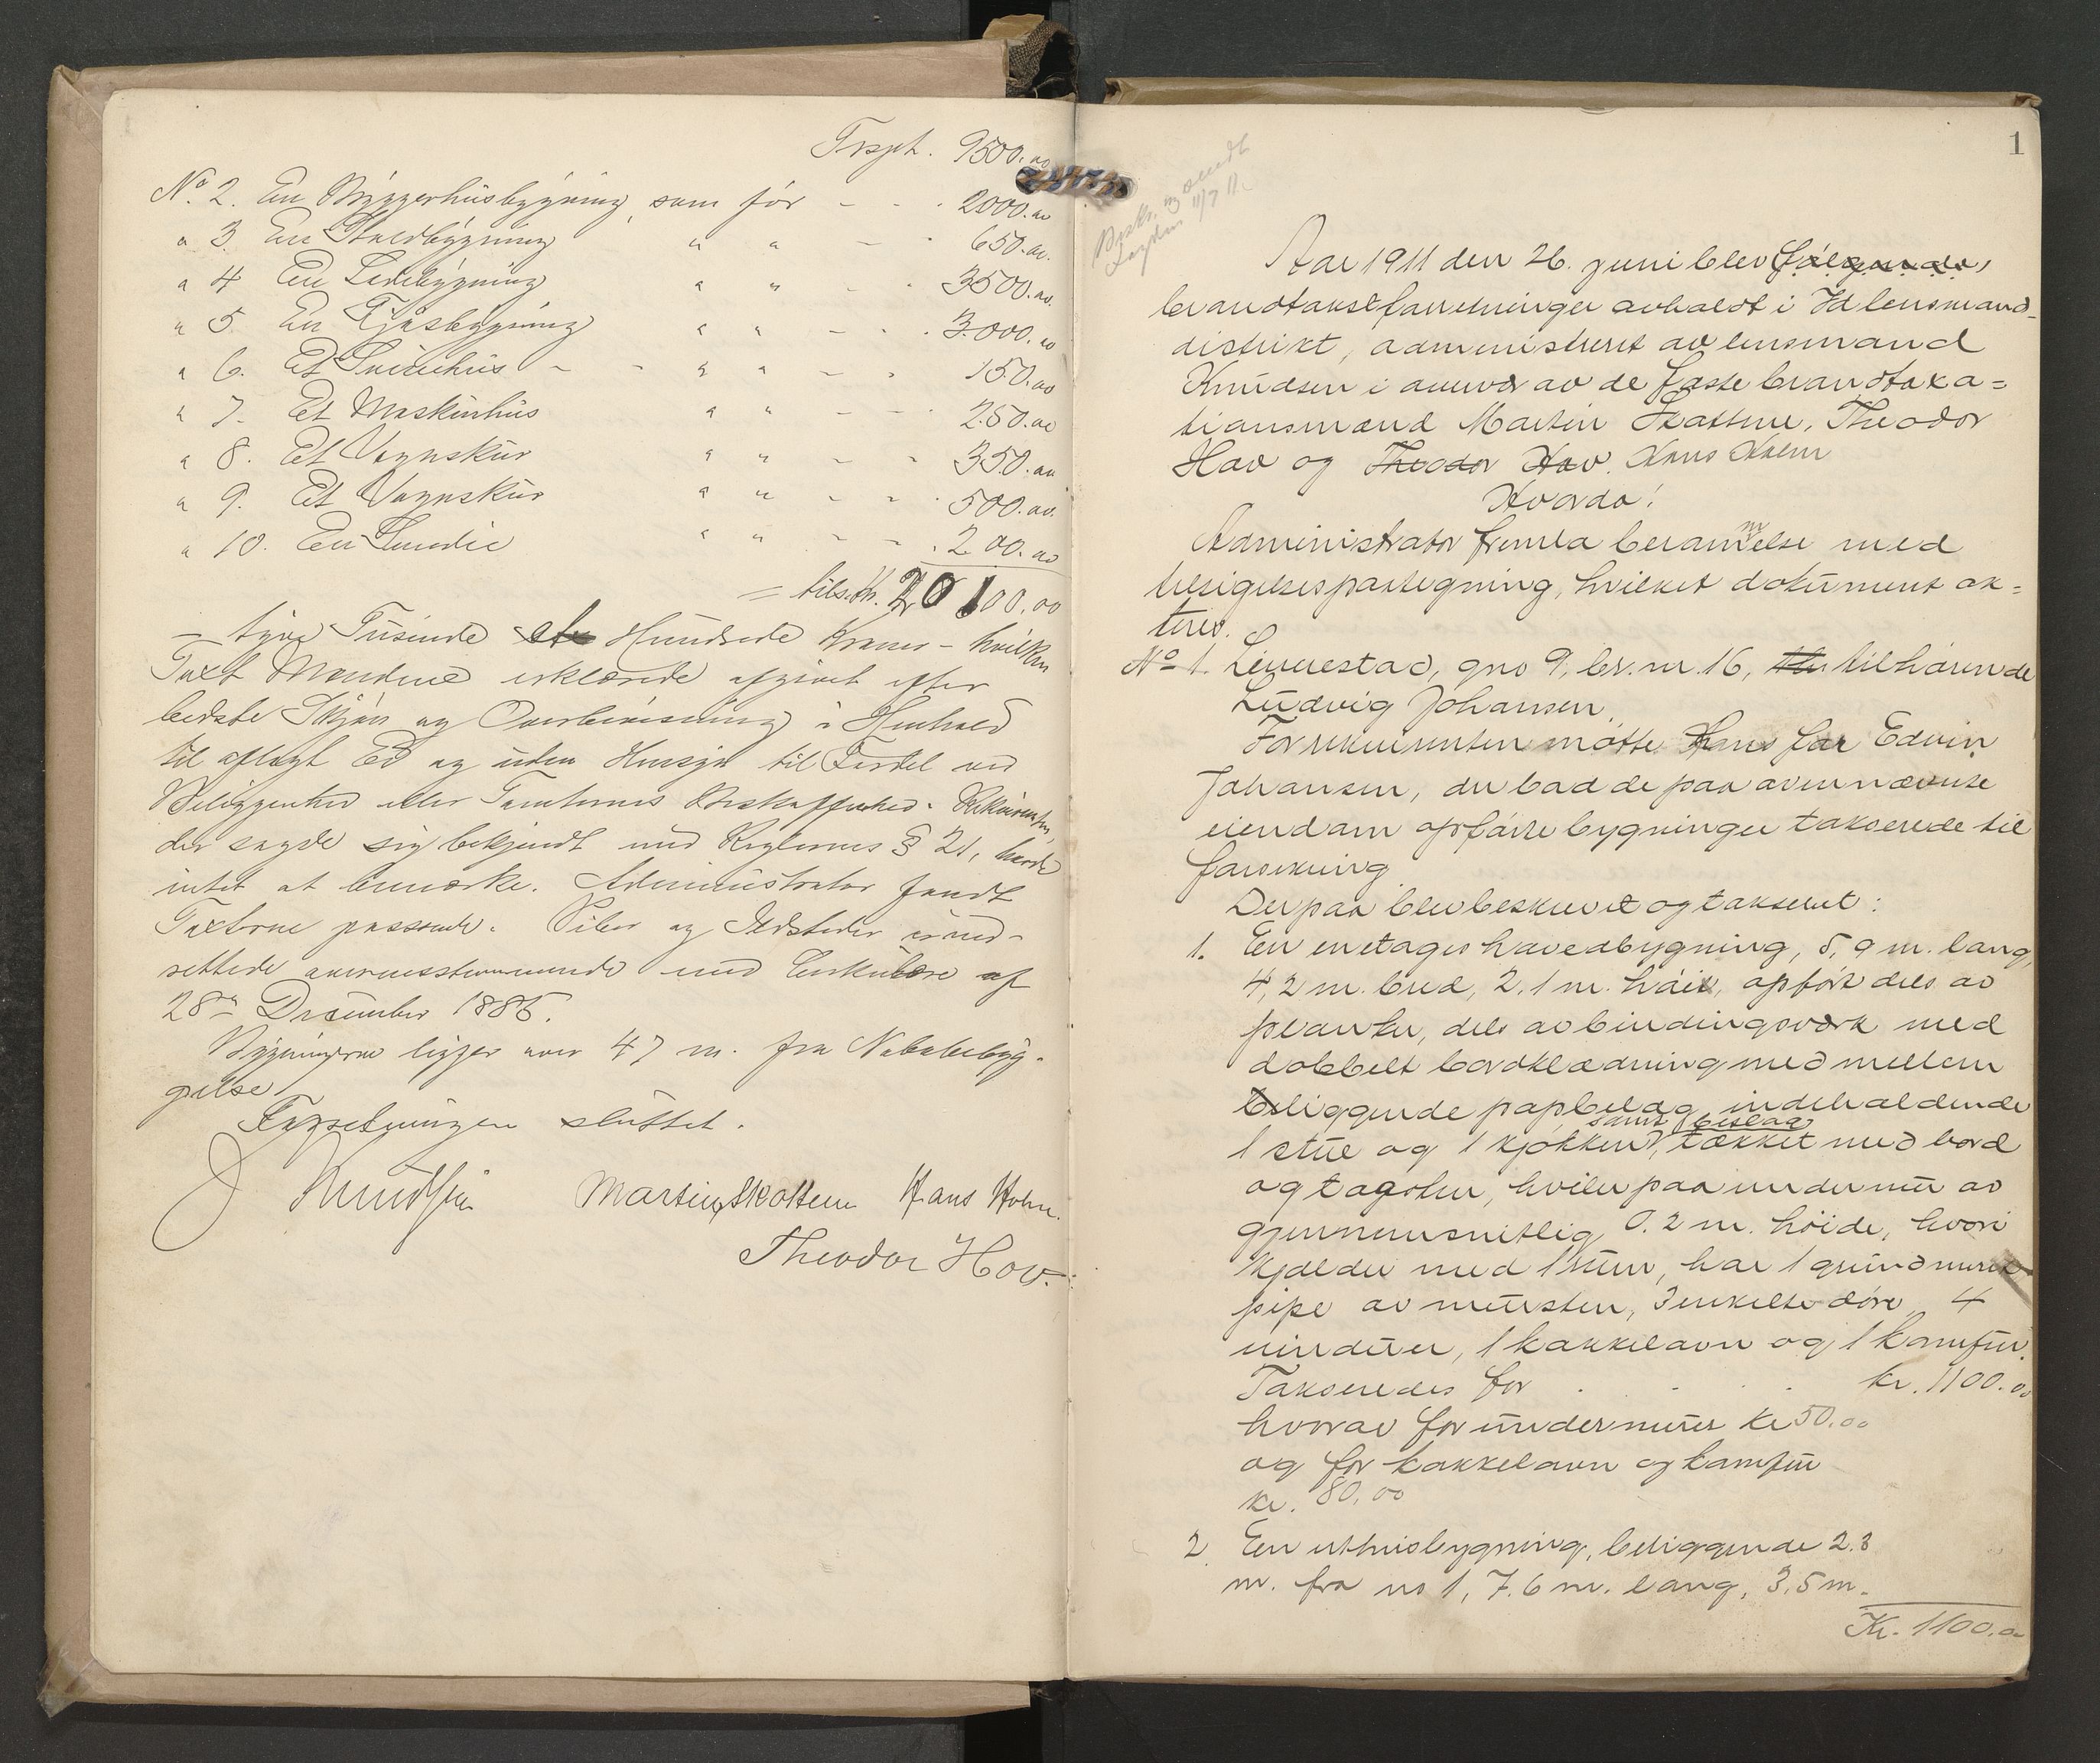 Trspt. 9500.00
No. 2. En Bryggerhusbygning, som før - - - 2000.00
" 3. En Staldbygning " " - - 650.00
" 4 En Ladebygning " " - - 3500.00
" 5. En Fjøsbygning " " - - 3.000.00
" 6. Et Svinehus - - " " - - 150.00
" 7. Et Maskinhus " " - - 250.00
" 8. Et Vognskur " " - - 350.00
" 9. Et Vognskur " " - - 500.00
" 10. En Smedie " " - - 200.00
= tils. Kr. 20100.00
- tyve Tusinde et Hundrede Kroner - hvilken
Taxt Mændene erklærede afgivet efter
bedste Skjøn og Overbevisning i Henhold
til aflagt Ed og uden Hensyn til Fordel ved
Beliggenhed eller Tomternes Beskaffenhed. Rekvirenten,
der sagde sig bekjendt med Reglernes § 21, havde
intet at bemærke. Administrator fandt
Taxterne passende. Piber og Ildsteder ind-
rettede overensstemmende med Cirkulære af
28de December 1886.
Bygningerne ligger over 47 m. fra Nabobebyg-
gelse.
Forretningen sluttet.
J Knudsen Martin Skattum Hans Holm.
Theodor Hov.
1
Aar 1911 den 26. juni blev følgende
brandtakstforretninger avholdt i Id lensmands-
distrikt, administreret av lensmand
Knudsen i nærvær av de faste brandtaxa=
tionsmænd Martin Skattum, Theodor
Hov og Theodor Hov. Hans Holm
Hvorda!
Administrator fremla berammelse med
tilsigelsespaategning, hvilket dokument ak=
teres.
No 1. Liverestad, gno 9, br. nr. 16, tilhørende
Ludvig Johansen.
For rekvirenten møtte hans far Edvin
Johansen, der bad de paa ovennævnte
eiendom opførte bygninger takserede til
forsikring.
Derpaa blev beskrevet og takseret:
1. En enetages hovedbygning, 5,9 m. lang,
4,2 m. bred, 2,1 m. høi, opført dels av
planker, dels av bindingsverk med
dobbelt bordklædning med mellem
beliggende papbelag, indeholdende
samt bislag
1 stue og 1 kjøkken, tækket med bord
og tagsten, hviler paa undermur av
gjennemsnitlig 0.2 m. høide, hvori
kjælder med 1 rum, har 1 grundmuret
pipe av mursten, 3 enkelte døre, 4
vinduer, 1 kakkelovn og 1 komfur.
Takseredes for . . . . kr. 1100.00
hvorav for undermurer kr 50.00
og for kakkelovn og komfur
kr. 80,00
2. En uthusbygning, beliggende 2.3
m. fra no 1, 7.6 m. lang, 3,5 m.
Kr. 1100.00